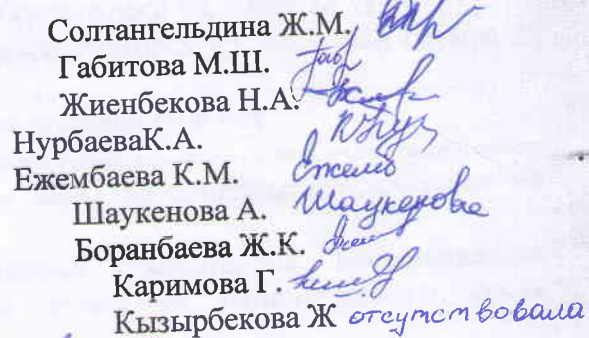 Солтангельдина Ж.М.
Габитова М.Ш.
Жиенбекова Н.А.
НурбаеваК.А.
Ежембаева К.М. Ежемб
Шаукенова А. Шаукенова
Боранбаева Ж.К.
Каримова Г.
Кызырбекова Ж отсутствовала